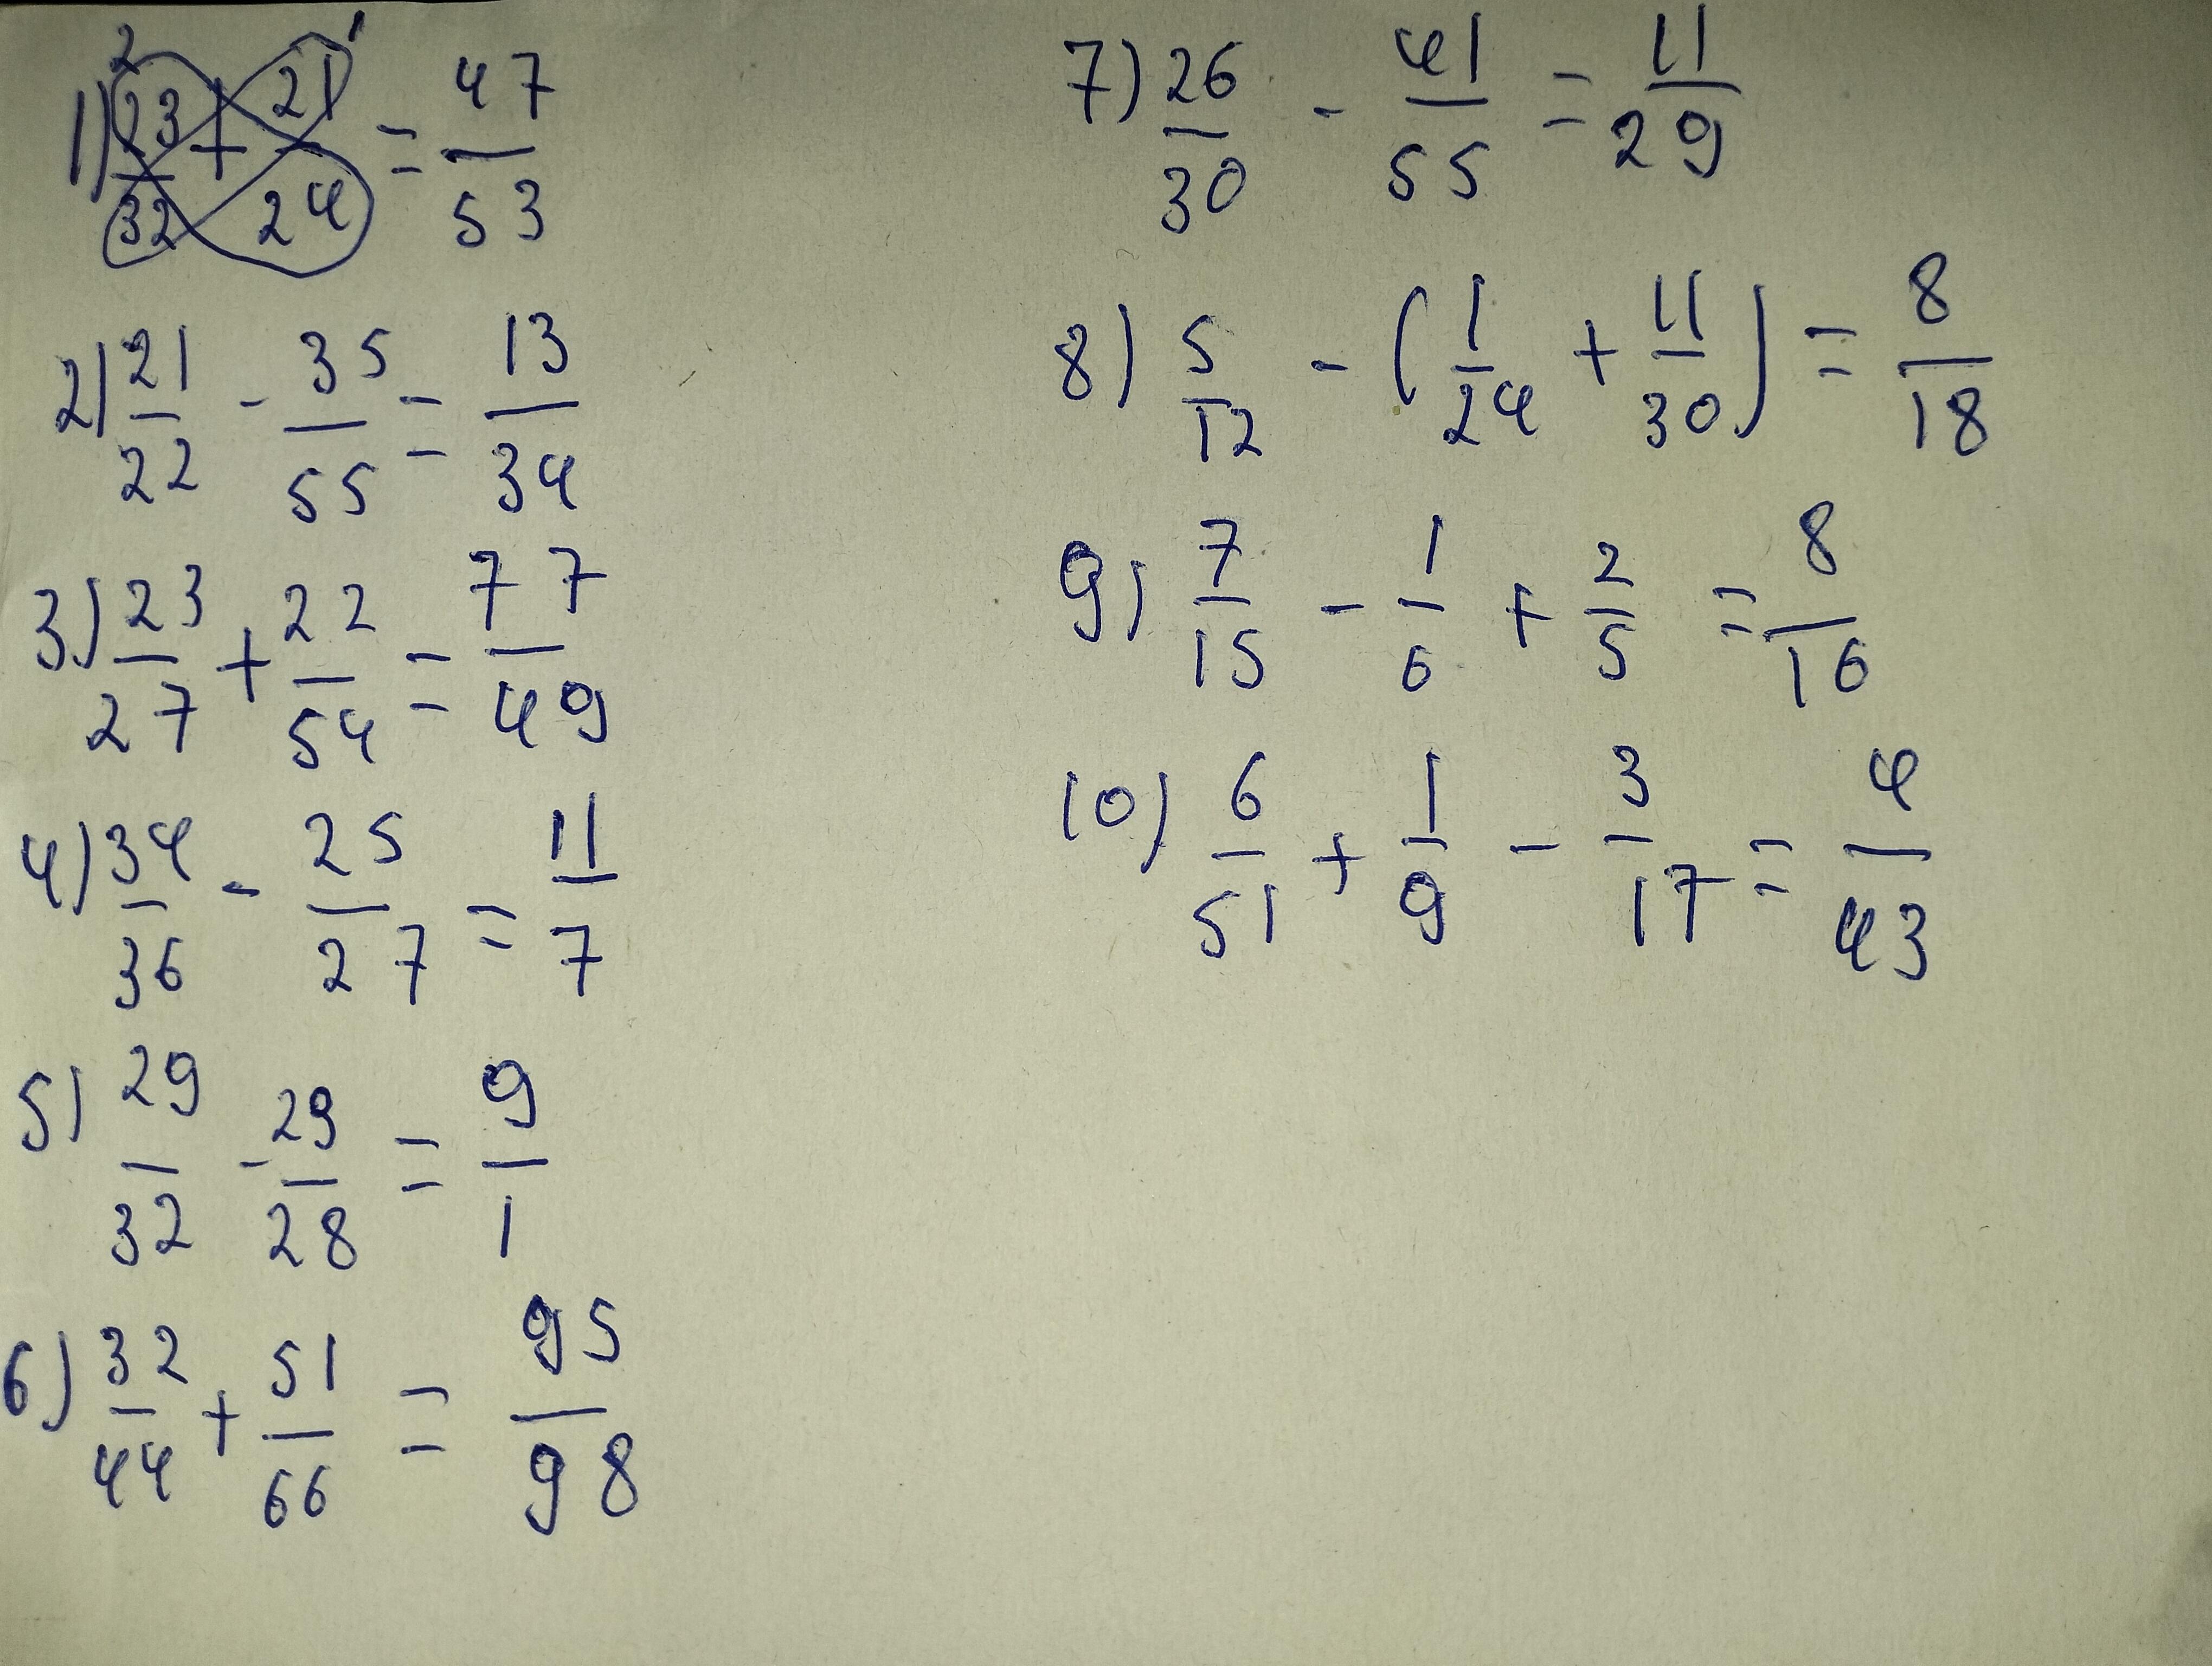 1) 23/32 + 21/24 = 47/53
2) 21/22 - 35/55 = 13/34
3) 23/27 + 22/54 = 77/49
4) 34/36 - 25/27 = 11/7
5) 29/32 - 29/28 = 9/1
6) 32/44 + 51/66 = 95/98
7) 26/30 - 41/55 = 11/29
8) 5/12 - (1/24 + 11/30) = 8/18
9) 7/15 - 1/6 + 2/5 = 8/16
10) 6/51 + 1/9 - 3/17 = 4/43